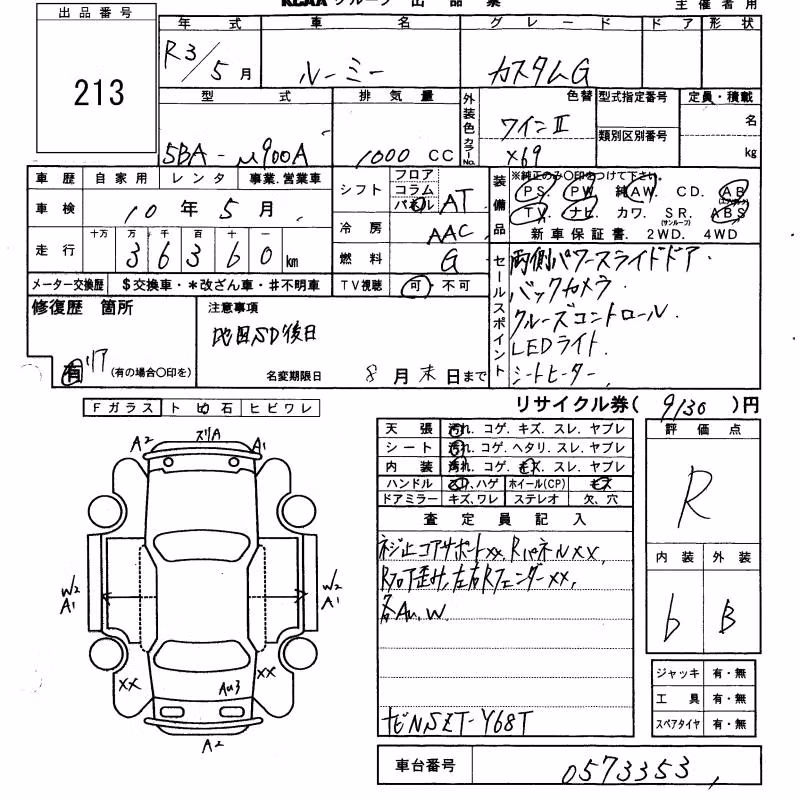 KCAA グループ 出 品 票
主 催 者 用
出 品 番 号
213
年 式
車 名
グ レ ー ド
ド ア
形 状
R3/5月
ルーミー
カスタムG
型 式
排 気 量
外装色
カラーNo.
色替
型式指定番号
定員・積載
5BA-M900A
1000 CC
ワインⅡ
X69
類別区別番号
名
kg
車 歴
自 家 用
レ ン タ
事業.営業車
シフト
フロア
コラム
パネル
AT
装備品
※純正のみ○印をつけて下さい。
PS. PW. 純AW. CD. AB
(エアバック)
TV. ナビ. カワ. SR. ABS
(サンルーフ)
新車保証書. 2WD. 4WD
車 検
10 年 5 月
冷 房
AAC
走 行
十万 万 千 百 十 一
3 6 3 6 0 km
燃 料
G
メーター交換歴
$交換車・*改ざん車・#不明車
TV視聴
可・不可
セールスポイント
両側パワースライドドア.
バックカメラ.
クルーズコントロール.
LEDライト.
シートヒーター
修復歴 箇所
有 リア
(有の場合○印を)
注意事項
地図SD後日
名変期限日 8 月 末 日まで
リサイクル券( 9130 )円
Fガラス
ト ビ 石
ヒ ビ ワ レ
天 張
汚れ. コゲ. キズ. スレ. ヤブレ
シート
汚れ. コゲ. ヘタリ. スレ. ヤブレ
内 装
汚れ. コゲ. キズ. スレ. ヤブレ
ハンドル
スリ.ハゲ
ホイール(CP)
キズ
ドアミラー
キズ.ワレ
ステレオ
欠、穴
評 価 点
R
内 装
外 装
6
B
査 定 員 記 入
ネジ止コアサポートxx Rパネルxx,
Rフロア歪み,左右Rフェンダーxx,
各Au.W.
ナビNSZT-Y68T
A2
ズリA
A1
W2
A1
W2
A1
xx
xx
Au3
A2
ジャッキ
有・無
工 具
有・無
スペアタイヤ
有・無
車台番号
0573353